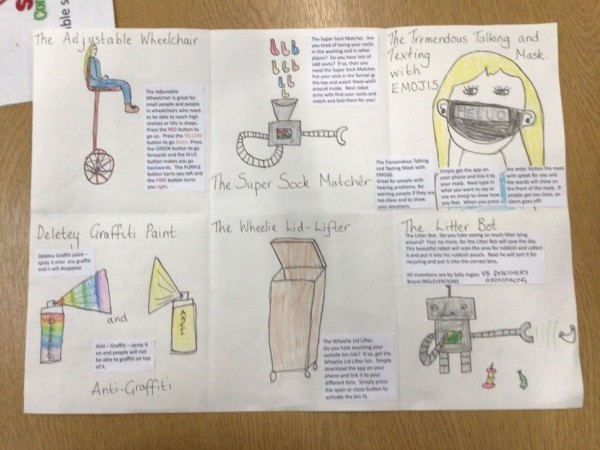 The Adjustable Wheelchair
The Adjustable
Wheelchair is great for
small people and people
in wheelchairs who need
to be able to reach high
shelves or tills in shops.
Press the RED button to
go up. Press the YELLOW
button to go down. Press
the GREEN button to go
forwards and the BLUE
button makes you go
backwards. The PURPLE
button turns you left and
the PINK button turns
you right.
The Super Sock Matcher. Are
you tired of losing your socks
in the washing and in other
places? Do you have lots
of odd socks? If so, then you
need the Super Sock Matcher.
Put your sock in the funnel at
the top and watch them whirl
around inside. Next robot
arms with find your socks and
match and fold them for you!
The Super Sock Matcher
The Tremendous Talking and
Texting Mask.
with
EMOJIS
HELLO
The Tremendous Talking
and Texting Mask with
EMOJI.
Great for people with
hearing problems, for
warning people if they are
too close and to show
your emotions.
Simply get the app on
your phone and link it to
your mask. Next type in
what you want to say or
use an emoji to show how
you feel. When you press
the enter button the mask
with speak for you and
the words will show on
the front of the mask. If
people get too close, an
alarm goes off!
Deletey Graffiti Paint
Deletey Graffiti paint –
spray it onto any graffiti
and it will disappear.
and
ANTI
Anti – Graffiti – spray it
on and people will not
be able to graffiti on top
of it.
Anti-Graffiti
The Wheelie Lid-Lifter
The Wheelie Lid Lifter.
Do you hate touching your
outside bin lids? If so, get the
Wheelie Lid Lifter. Simply
download the app on your
phone and link it to your
different bins. Simply press
the open or close button to
activate the bin lit.
The Litter Bot
The Litter Bot. Do you hate seeing so much litter lying
around? Fear no more, for the Litter Bot will save the day.
This beautiful robot will scan the area for rubbish and collect
it and put it into his rubbish pouch. Next he will sort it for
recycling and put it into the correct bins.
All inventions are by Sally Ingles Y5 DISCOVERY
Brand INGLEVENTIONS ARMSTRONG